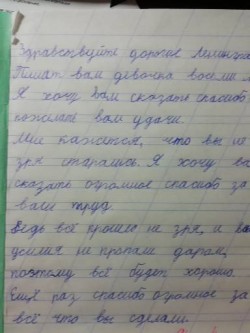 Здравствуйте дорогие
Пишет вам девочка восьми
Я хочу вам сказать спасибо
пожелать вам удачи.
Мне кажется, что вы не
зря старались. Я хочу
сказать огромное спасибо за
ваш труд.
Ведь всё прошло не зря, и
усилия не пропали даром,
поэтому всё будет хорошо.
Ещё раз спасибо огромное за
всё что вы сделали.